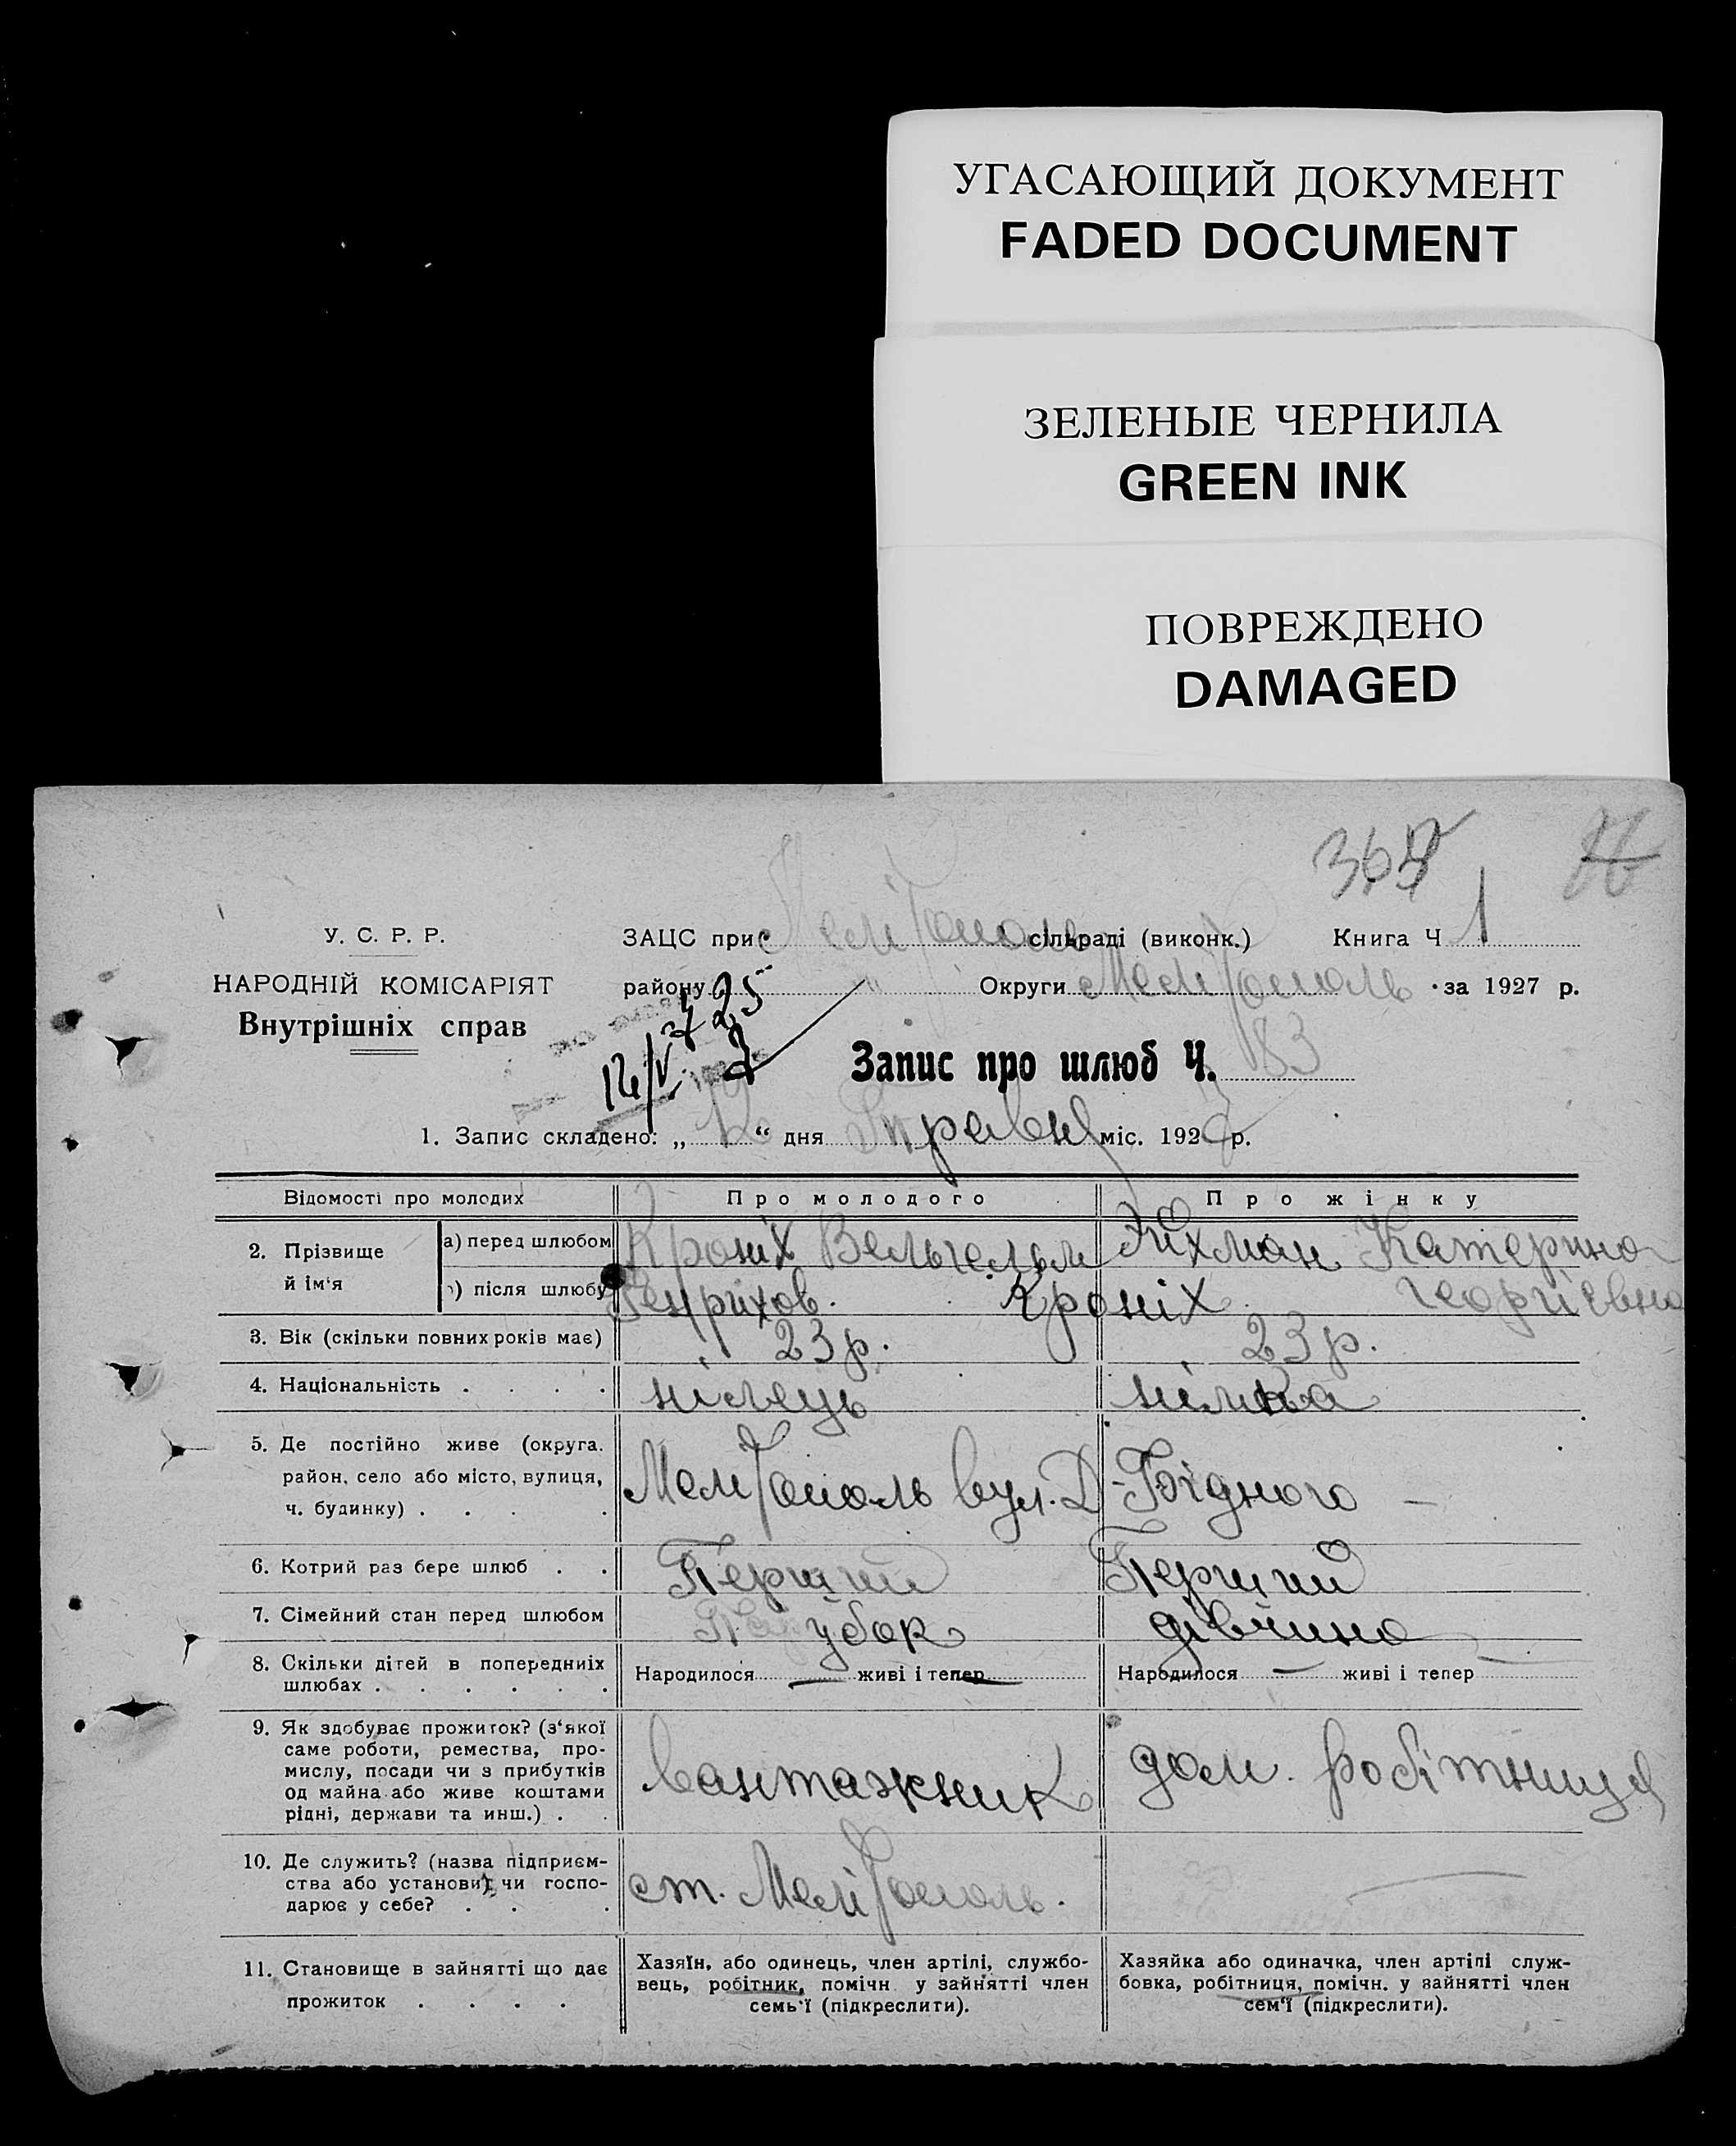 УГАСАЮЩИЙ ДОКУМЕНТ
FADED DOCUMENT
ЗЕЛЕНЫЕ ЧЕРНИЛА
GREEN INK
ПОВРЕЖДЕНО
DAMAGED
У. С. Р. Р.
НАРОДНІЙ КОМІСАРІЯТ
Внутрішніх справ
ЗАЦС при Мелітополь сільраді (виконк.) Книга Ч 1
району " Округи Мелітополь за 1927 р.
Запис про шлюб Ч. 183
1. Запис складено: „ 12 “ дня Травня міс. 1927 р.
Відомості про молодих Про молодого Про жінку
2. Прізвище й ім'я
а) перед шлюбом Кроніх Вельгельм Генрихов. Катерина Георгіевна
б) після шлюбу Кроніх
3. Вік (скільки повних років має) 23 р. 23 р.
4. Національність . . . . німець німка
5. Де постійно живе (округа.
район, село або місто, вулиця,
ч. будинку) . . . . Мелітополь вул. Д-Бідного –
6. Котрий раз бере шлюб . . Перший Перший
7. Сімейний стан перед шлюбом Парубок дівчина
8. Скільки дітей в попередніх
шлюбах . . . . . . Народилося — живі і тепер — Народилося — живі і тепер —
9. Як здобуває прожиток? (з'якої
саме роботи, ремества, про-
мислу, посади чи з прибутків
од майна або живе коштами
рідні, держави та инш.) . . вантажник дом. робітниця
10. Де служить? (назва підприєм-
ства або установи, чи госпо-
дарює у себе? . . . ст. Мелітополь. —
11. Становище в зайнятті що дає
прожиток . . . .
Хазяїн, або одинець, член артілі, службо-
вець, робітник, помічн. у зайнятті член
семь'ї (підкреслити).
Хазяйка або одиначка, член артілі служ-
бовка, робітниця, помічн. у зайнятті член
сем'ї (підкреслити).